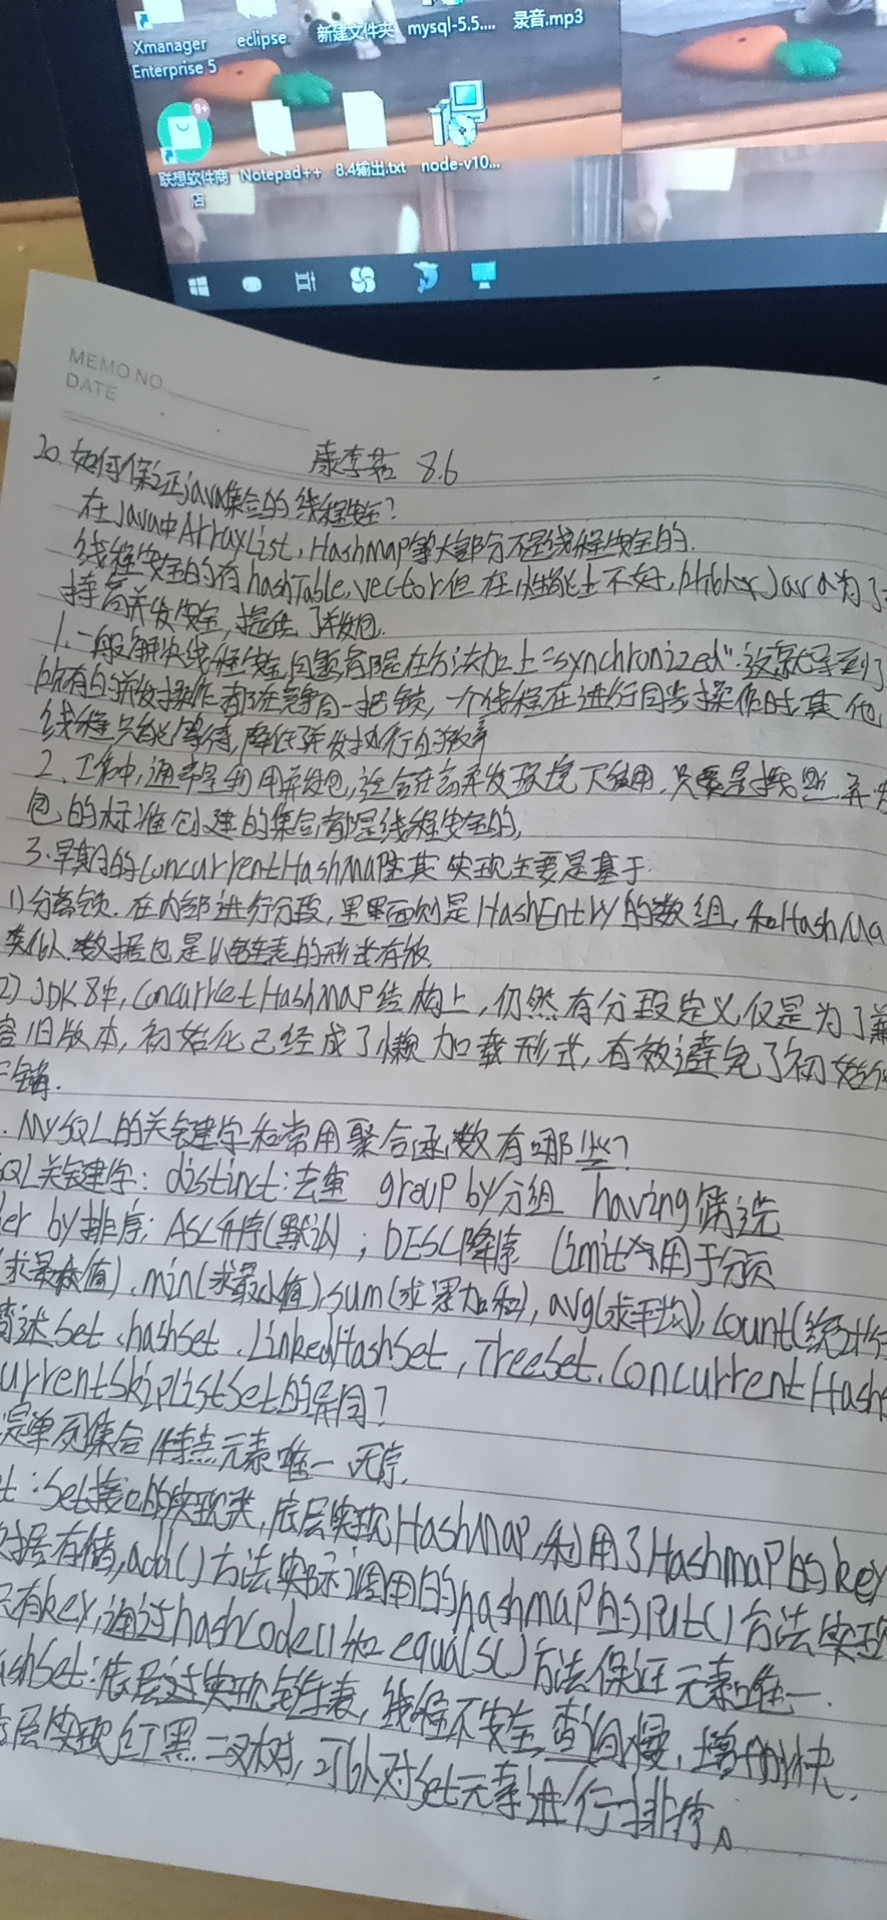 Xmanager Enterprise 5
eclipse
新建文件夹
mysql-5.5....
录音.mp3
9+
联想软件商店
Notepad++
8.4输出.txt
node-v10...
MEMO NO
DATE
康李 8.6
20.如何保证java集合的线程安全?
在Java中ArrayList,HashMap等大部分不是线程安全的.
线程安全的有hashTable,vector但在性能上不好,所以Java为了
提高并发安全,提供了并发包.
1.一般解决线程安全问题都是在方法加上"synchronized".这就导致到了
所有的并发操作都在竞争同一把锁,一个线程在进行同步操作时其他
线程只能等待,降低了并发执行的效率
2.工作中,通常是利用并发包,适合在高并发环境下使用.只要是按照并发
包的标准创建的集合都是线程安全的,
3.早期的ConcurrentHashMap其实现主要是基于.
1)分离锁.在内部进行分段,里面则是HashEntry的数组,和HashMa
类似.数据也是以链表的形式存放.
2)JDK8中,ConcurrcetHashMap结构上,仍然有分段定义,仅是为了兼
容旧版本,初始化已经成了懒加载形式,有效避免了初始化
开销.
.MySQL的关键字和常用聚合函数有哪些?
SQL关键字:distinct:去重 group by分组 having筛选
der by排序;ASC升序(默认);DESC降序 limit用于分页
(求最大值).min(求最小值).sum(求累加和),avg(求平均),count(统计行
简述Set、hashSet、LinkedHashSet,TreeSet.ConcurrentHashS
urrentSkipListSet的异同?
是单列集合 特点元素唯一 无序.
t:Set接口的实现类,底层实现HashMap,利用了HashMap的key
数据存储,add()方法实际调用的hashmap的put()方法实现
只有key,通过hashCode()和equals()方法保证元素唯一.
ashSet:底层实现链表,线程不安全,查询慢,增删快.
底层实现红黑二叉树,可以对Set元素进行排序。